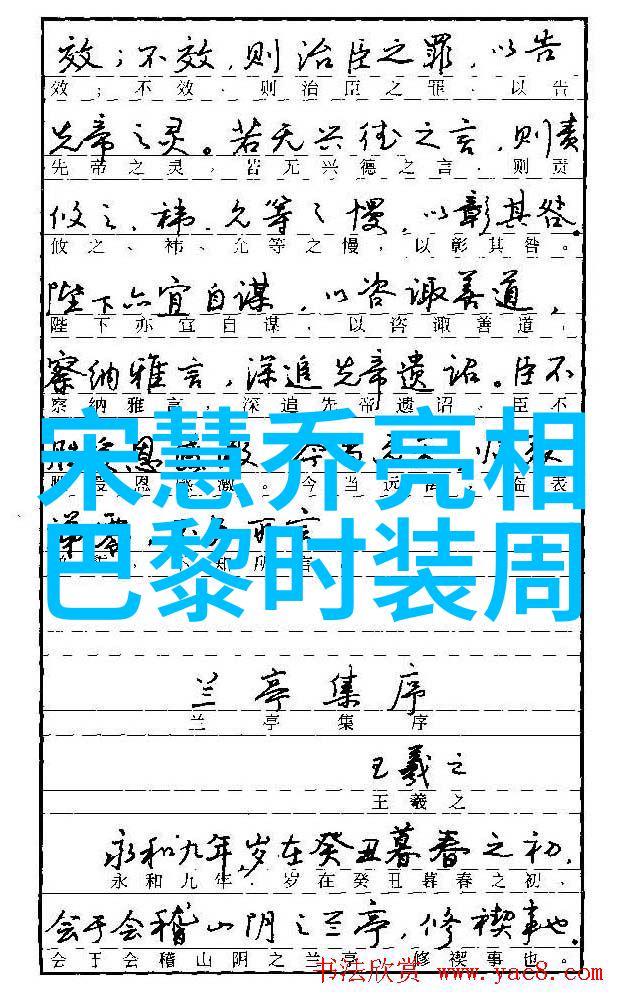 效；不效，则治臣之罪，以告
效；不效、则治臣之罪、以告
先帝之灵。若无兴德之言，则责
先帝之灵，若无兴德之言、则责
攸之、祎、允等之慢，以彰其咎。
攸之、祎、允等之慢，以彰其咎。
陛下亦宜自谋，以咨诹善道，
陛下亦宜自谋，以咨诹善道，
察纳雅言，深追先帝遗诏。臣不
察纳雅言，深追先帝遗诏。臣不
宋慧乔亮相
恩感激。今当远 临表
巴黎时装周
兰亭集序
兰亭集序
王羲之
王羲之
永和九年，岁在癸丑暮春之初，
永和九年，岁在癸丑暮春之初、
会于会稽山阴之兰亭，修禊事也。
会于会稽山阴之兰亭 修禊事也。
书法欣赏 www.yac8.com